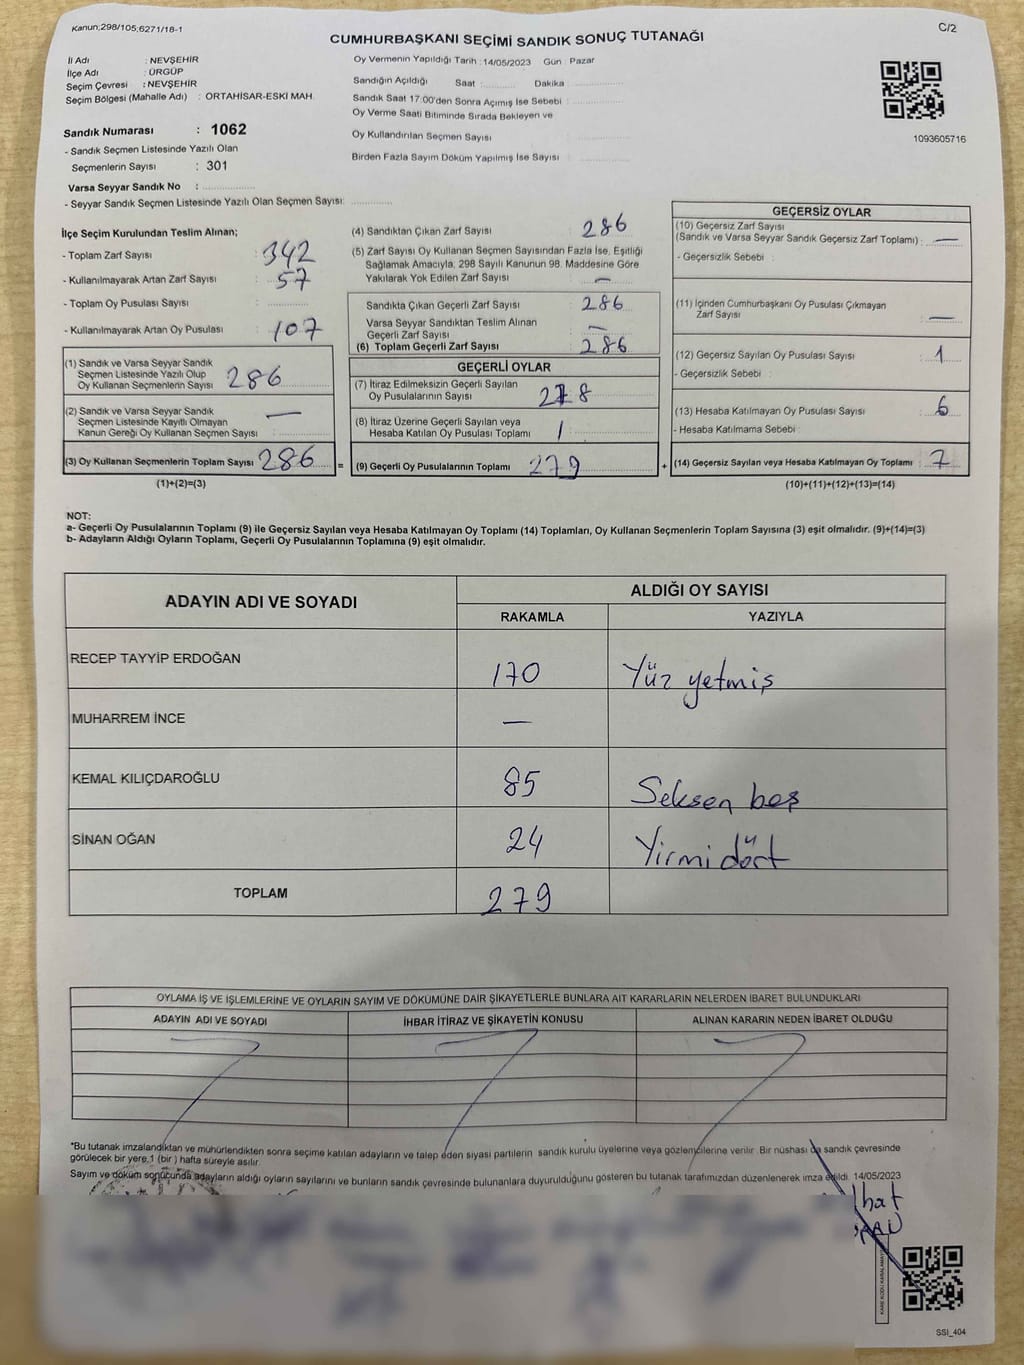 Kanun;298/105;6271/18-1
C/2
CUMHURBAŞKANI SEÇİMİ SANDIK SONUÇ TUTANAĞI
İl Adı : NEVŞEHİR
İlçe Adı : ÜRGÜP
Seçim Çevresi : NEVŞEHİR
Seçim Bölgesi (Mahalle Adı) : ORTAHİSAR-ESKİ MAH.
Sandık Numarası : 1062
- Sandık Seçmen Listesinde Yazılı Olan
Seçmenlerin Sayısı : 301
Varsa Seyyar Sandık No :
- Seyyar Sandık Seçmen Listesinde Yazılı Olan Seçmen Sayısı:
Oy Vermenin Yapıldığı Tarih : 14/05/2023 Gün : Pazar
Sandığın Açıldığı Saat : Dakika
Sandık Saat 17:00'den Sonra Açımış İse Sebebi :
Oy Verme Saati Bitiminde Sırada Bekleyen ve
Oy Kullandırılan Seçmen Sayısı :
Birden Fazla Sayım Döküm Yapılmış İse Sayısı :
1093605716
İlçe Seçim Kurulundan Teslim Alınan;
- Toplam Zarf Sayısı : 342
- Kullanılmayarak Artan Zarf Sayısı : 57
- Toplam Oy Pusulası Sayısı :
- Kullanılmayarak Artan Oy Pusulası : 107
(1) Sandık ve Varsa Seyyar Sandık
Seçmen Listesinde Yazılı Olup
Oy Kullanan Seçmenlerin Sayısı 286
(2) Sandık ve Varsa Seyyar Sandık
Seçmen Listesinde Kayıtlı Olmayan
Kanun Gereği Oy Kullanan Seçmen Sayısı : —
(3) Oy Kullanan Seçmenlerin Toplam Sayısı 286
(1)+(2)=(3)
(4) Sandıktan Çıkan Zarf Sayısı : 286
(5) Zarf Sayısı Oy Kullanan Seçmen Sayısından Fazla İse, Eşitliği
Sağlamak Amacıyla, 298 Sayılı Kanunun 98. Maddesine Göre
Yakılarak Yok Edilen Zarf Sayısı : —
Sandıkta Çıkan Geçerli Zarf Sayısı : 286
Varsa Seyyar Sandıktan Teslim Alınan
Geçerli Zarf Sayısı : —
(6) Toplam Geçerli Zarf Sayısı : 286
GEÇERLİ OYLAR
(7) İtiraz Edilmeksizin Geçerli Sayılan
Oy Pusulalarının Sayısı : 278
(8) İtiraz Üzerine Geçerli Sayılan veya
Hesaba Katılan Oy Pusulası Toplamı : 1
= (9) Geçerli Oy Pusulalarının Toplamı : 279
GEÇERSİZ OYLAR
(10) Geçersiz Zarf Sayısı
(Sandık ve Varsa Seyyar Sandık Geçersiz Zarf Toplamı) : —
- Geçersizlik Sebebi :
(11) İçinden Cumhurbaşkanı Oy Pusulası Çıkmayan
Zarf Sayısı : —
(12) Geçersiz Sayılan Oy Pusulası Sayısı : 1
- Geçersizlik Sebebi :
(13) Hesaba Katılmayan Oy Pusulası Sayısı : 6
- Hesaba Katılmama Sebebi :
+ (14) Geçersiz Sayılan veya Hesaba Katılmayan Oy Toplamı : 7
(10)+(11)+(12)+(13)=(14)
NOT:
a- Geçerli Oy Pusulalarının Toplamı (9) ile Geçersiz Sayılan veya Hesaba Katılmayan Oy Toplamı (14) Toplamları, Oy Kullanan Seçmenlerin Toplam Sayısına (3) eşit olmalıdır. (9)+(14)=(3)
b- Adayların Aldığı Oyların Toplamı, Geçerli Oy Pusulalarının Toplamına (9) eşit olmalıdır.
ADAYIN ADI VE SOYADI
ALDIĞI OY SAYISI
RAKAMLA YAZIYLA
RECEP TAYYİP ERDOĞAN 170 Yüz yetmiş
MUHARREM İNCE —
KEMAL KILIÇDAROĞLU 85 Seksen beş
SİNAN OĞAN 24 Yirmi dört
TOPLAM 279
OYLAMA İŞ VE İŞLEMLERİNE VE OYLARIN SAYIM VE DÖKÜMÜNE DAİR ŞİKAYETLERLE BUNLARA AİT KARARLARIN NELERDEN İBARET BULUNDUKLARI
ADAYIN ADI VE SOYADI İHBAR İTİRAZ VE ŞİKAYETİN KONUSU ALINAN KARARIN NEDEN İBARET OLDUĞU
*Bu tutanak imzalandıktan ve mühürlendikten sonra seçime katılan adayların ve talep eden siyasi partilerin sandık kurulu üyelerine veya gözlemcilerine verilir. Bir nüshası da sandık çevresinde
görülecek bir yere,1 (bir ) hafta süreyle asılır.
Sayım ve döküm sonucunda adayların aldığı oyların sayılarını ve bunların sandık çevresinde bulunanlara duyurulduğunu gösteren bu tutanak tarafımızdan düzenlenerek imza edildi. 14/05/2023
KARE KODU KARALAMAYINIZ
SSI_404